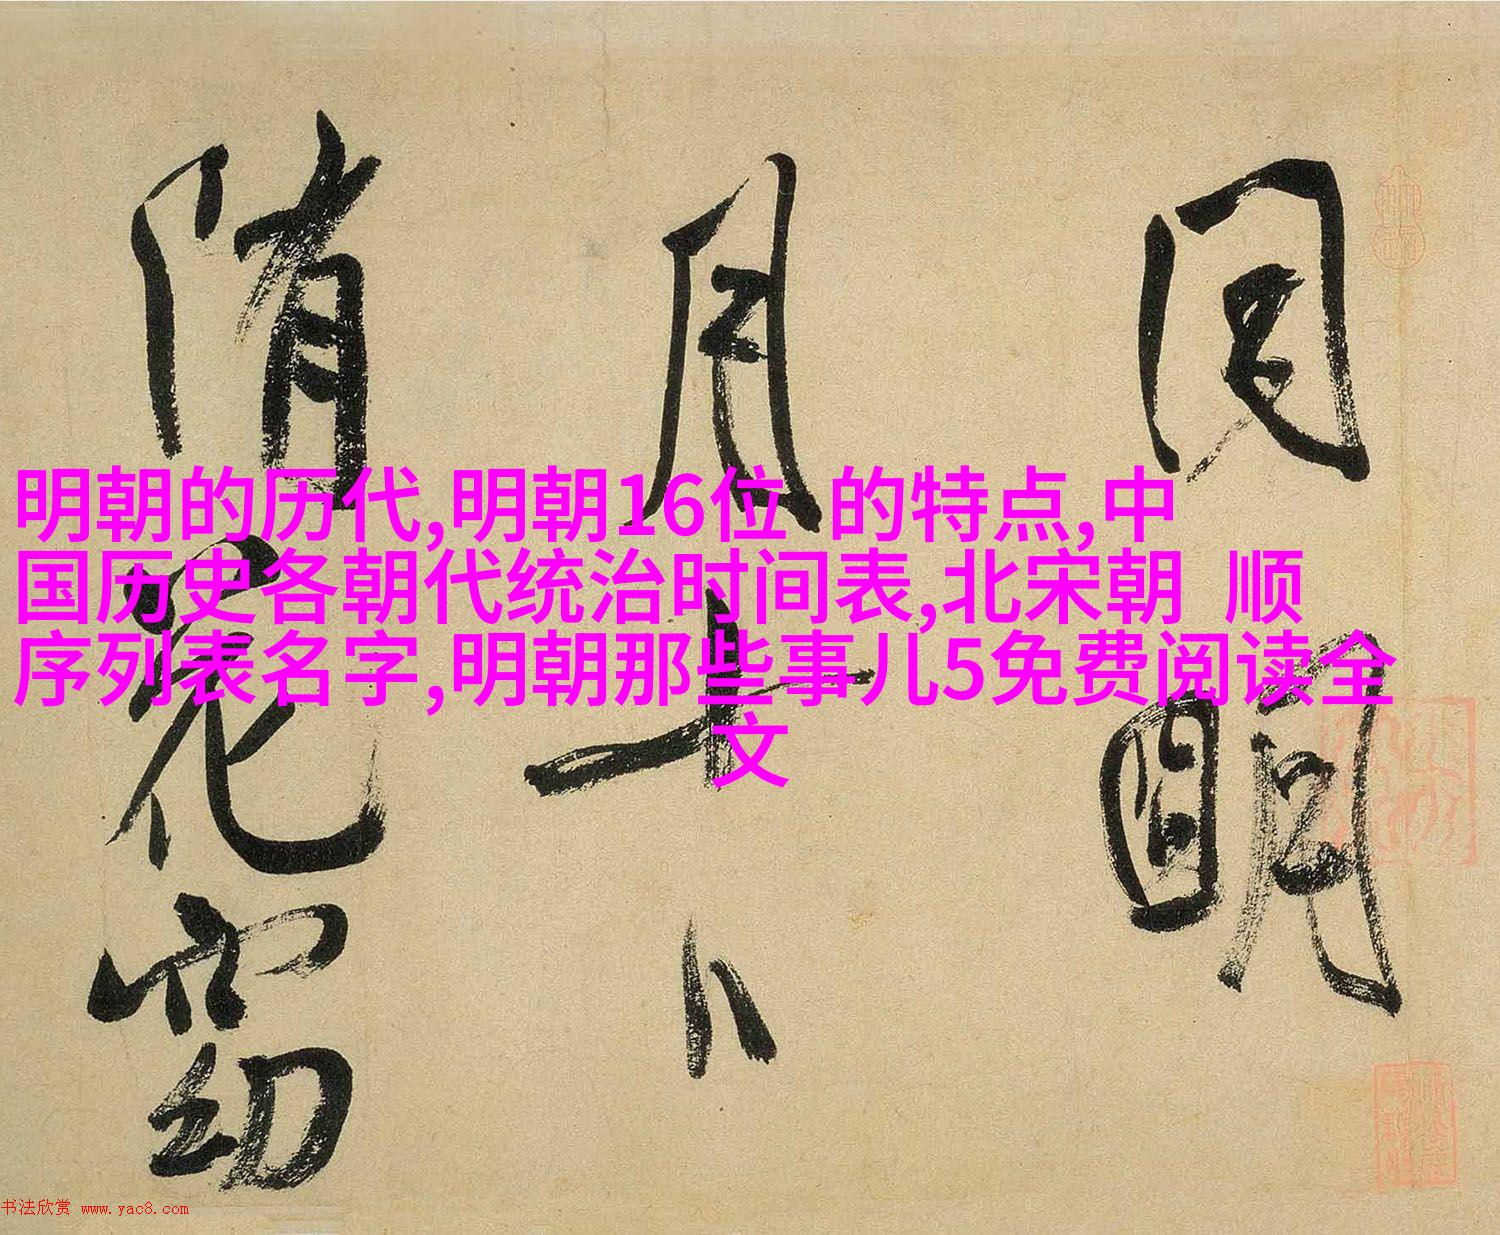 明朝的历代,明朝16位 的特点,中
国历史各朝代统治时间表,北宋朝 顺
序列表名字,明朝那些事儿5免费阅读全
文
明
月十八
书法欣赏 www.yac8.com